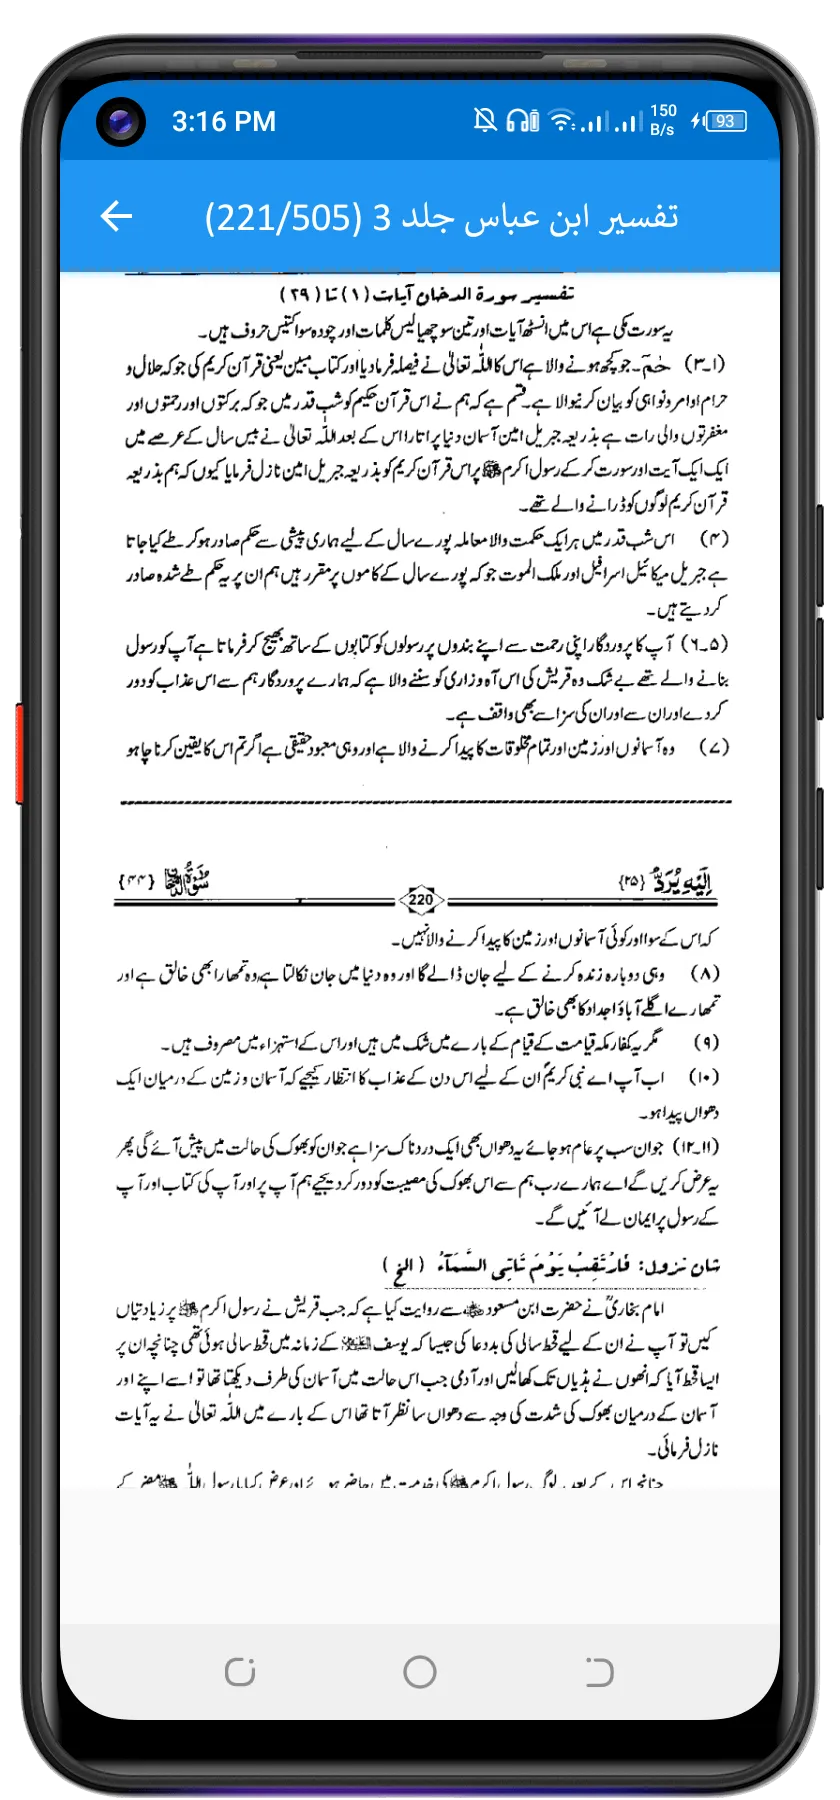 3:16 PM
150
B/s
93
تفسیر ابن عباس جلد 3 (221/505)
تفسیر سورۃ الدخان آیات (۱) تا (۲۹)
یہ سورت مکی ہے اس میں انسٹھ آیات اور تین سو چھیالیس کلمات اور چودہ سو اکتیس حروف ہیں۔
(۱۔۳) حٰمٓ۔ جو کچھ ہونے والا ہے اس کا اللہ تعالیٰ نے فیصلہ فرمادیا اور کتاب مبین یعنی قرآن کریم کی جو کہ حلال و
حرام اوامر و نواہی کو بیان کرنیوالا ہے۔ قسم ہے کہ ہم نے اس قرآن حکیم کو شب قدر میں جو کہ برکتوں اور رحمتوں اور
مغفرتوں والی رات ہے بذریعہ جبریل امین آسمان دنیا پر اتارا اس کے بعد اللہ تعالیٰ نے بیس سال کے عرصے میں
ایک ایک آیت اور سورت کر کے رسول اکرم ﷺ پر اس قرآن کریم کو بذریعہ جبریل امین نازل فرمایا کیوں کہ ہم بذریعہ
قرآن کریم لوگوں کو ڈرانے والے تھے۔
(۴) اس شب قدر میں ہر ایک حکمت والا معاملہ پورے سال کے لیے ہماری پیشی سے حکم صادر ہو کر طے کیا جاتا
ہے جبریل میکائیل اسرافیل اور ملک الموت جو کہ پورے سال کے کاموں پر مقرر ہیں ہم ان پر یہ حکم طے شدہ صادر
کر دیتے ہیں۔
(۵۔۶) آپ کا پروردگار اپنی رحمت سے اپنے بندوں پر رسولوں کو کتابوں کے ساتھ بھیج کر فرماتا ہے آپ کو رسول
بنانے والے تھے بے شک وہ قریش کی اس آہ و زاری کو سننے والا ہے کہ ہمارے پروردگار ہم سے اس عذاب کو دور
کر دے اور ان سے اور ان کی سزا سے بھی واقف ہے۔
(۷) وہ آسمانوں اور زمین اور تمام مخلوقات کا پیدا کرنے والا ہے اور وہی معبود حقیقی ہے اگر تم اس کا یقین کرنا چاہو
اِلَیْہِ یُرَدُّ {۲۵}
220
سُوْرَۃُ الدُّخَان {۴۴}
کہ اس کے سوا اور کوئی آسمانوں اور زمین کا پیدا کرنے والا نہیں۔
(۸) وہی دوبارہ زندہ کرنے کے لیے جان ڈالے گا اور وہ دنیا میں جان نکالتا ہے وہ تمھارا بھی خالق ہے اور
تمھارے اگلے آباؤ اجداد کا بھی خالق ہے۔
(۹) مگر یہ کفار مکہ قیامت کے قیام کے بارے میں شک میں ہیں اور اس کے استہزاء میں مصروف ہیں۔
(۱۰) اب آپ اے نبی کریم ان کے لیے اس دن کے عذاب کا انتظار کیجیے کہ آسمان و زمین کے درمیان ایک
دھواں پیدا ہو۔
(۱۱۔۱۲) جو ان سب پر عام ہو جائے یہ دھواں بھی ایک دردناک سزا ہے جو ان کو بھوک کی حالت میں پیش آئے گی پھر
یہ عرض کریں گے اے ہمارے رب ہم سے اس بھوک کی مصیبت کو دور کر دیجیے ہم آپ پر اور آپ کی کتاب اور آپ
کے رسول پر ایمان لے آئیں گے۔
شان نزول: فَارْتَقِبْ یَوْمَ تَاْتِی السَّمَآءُ (الخ)
امام بخاریؒ نے حضرت ابن مسعود ؓ سے روایت کیا ہے کہ جب قریش نے رسول اکرم ﷺ پر زیادتیاں
کیں تو آپ نے ان کے لیے قحط سالی کی بددعا کی جیسا کہ یوسف علیہ السلام کے زمانہ میں قحط سالی ہوئی تھی چنانچہ ان پر
ایسا قحط آیا کہ انھوں نے ہڈیاں تک کھالیں اور آدمی جب اس حالت میں آسمان کی طرف دیکھتا تھا تو اسے اپنے اور
آسمان کے درمیان بھوک کی شدت کی وجہ سے دھواں سا نظر آتا تھا اس کے بارے میں اللہ تعالیٰ نے یہ آیات
نازل فرمائی۔
چنانچہ اس کے بعد لوگ رسول اکرم ﷺ کی خدمت میں حاضر ہوئے اور عرض کیا یا رسول اللہ ﷺ مضر کے